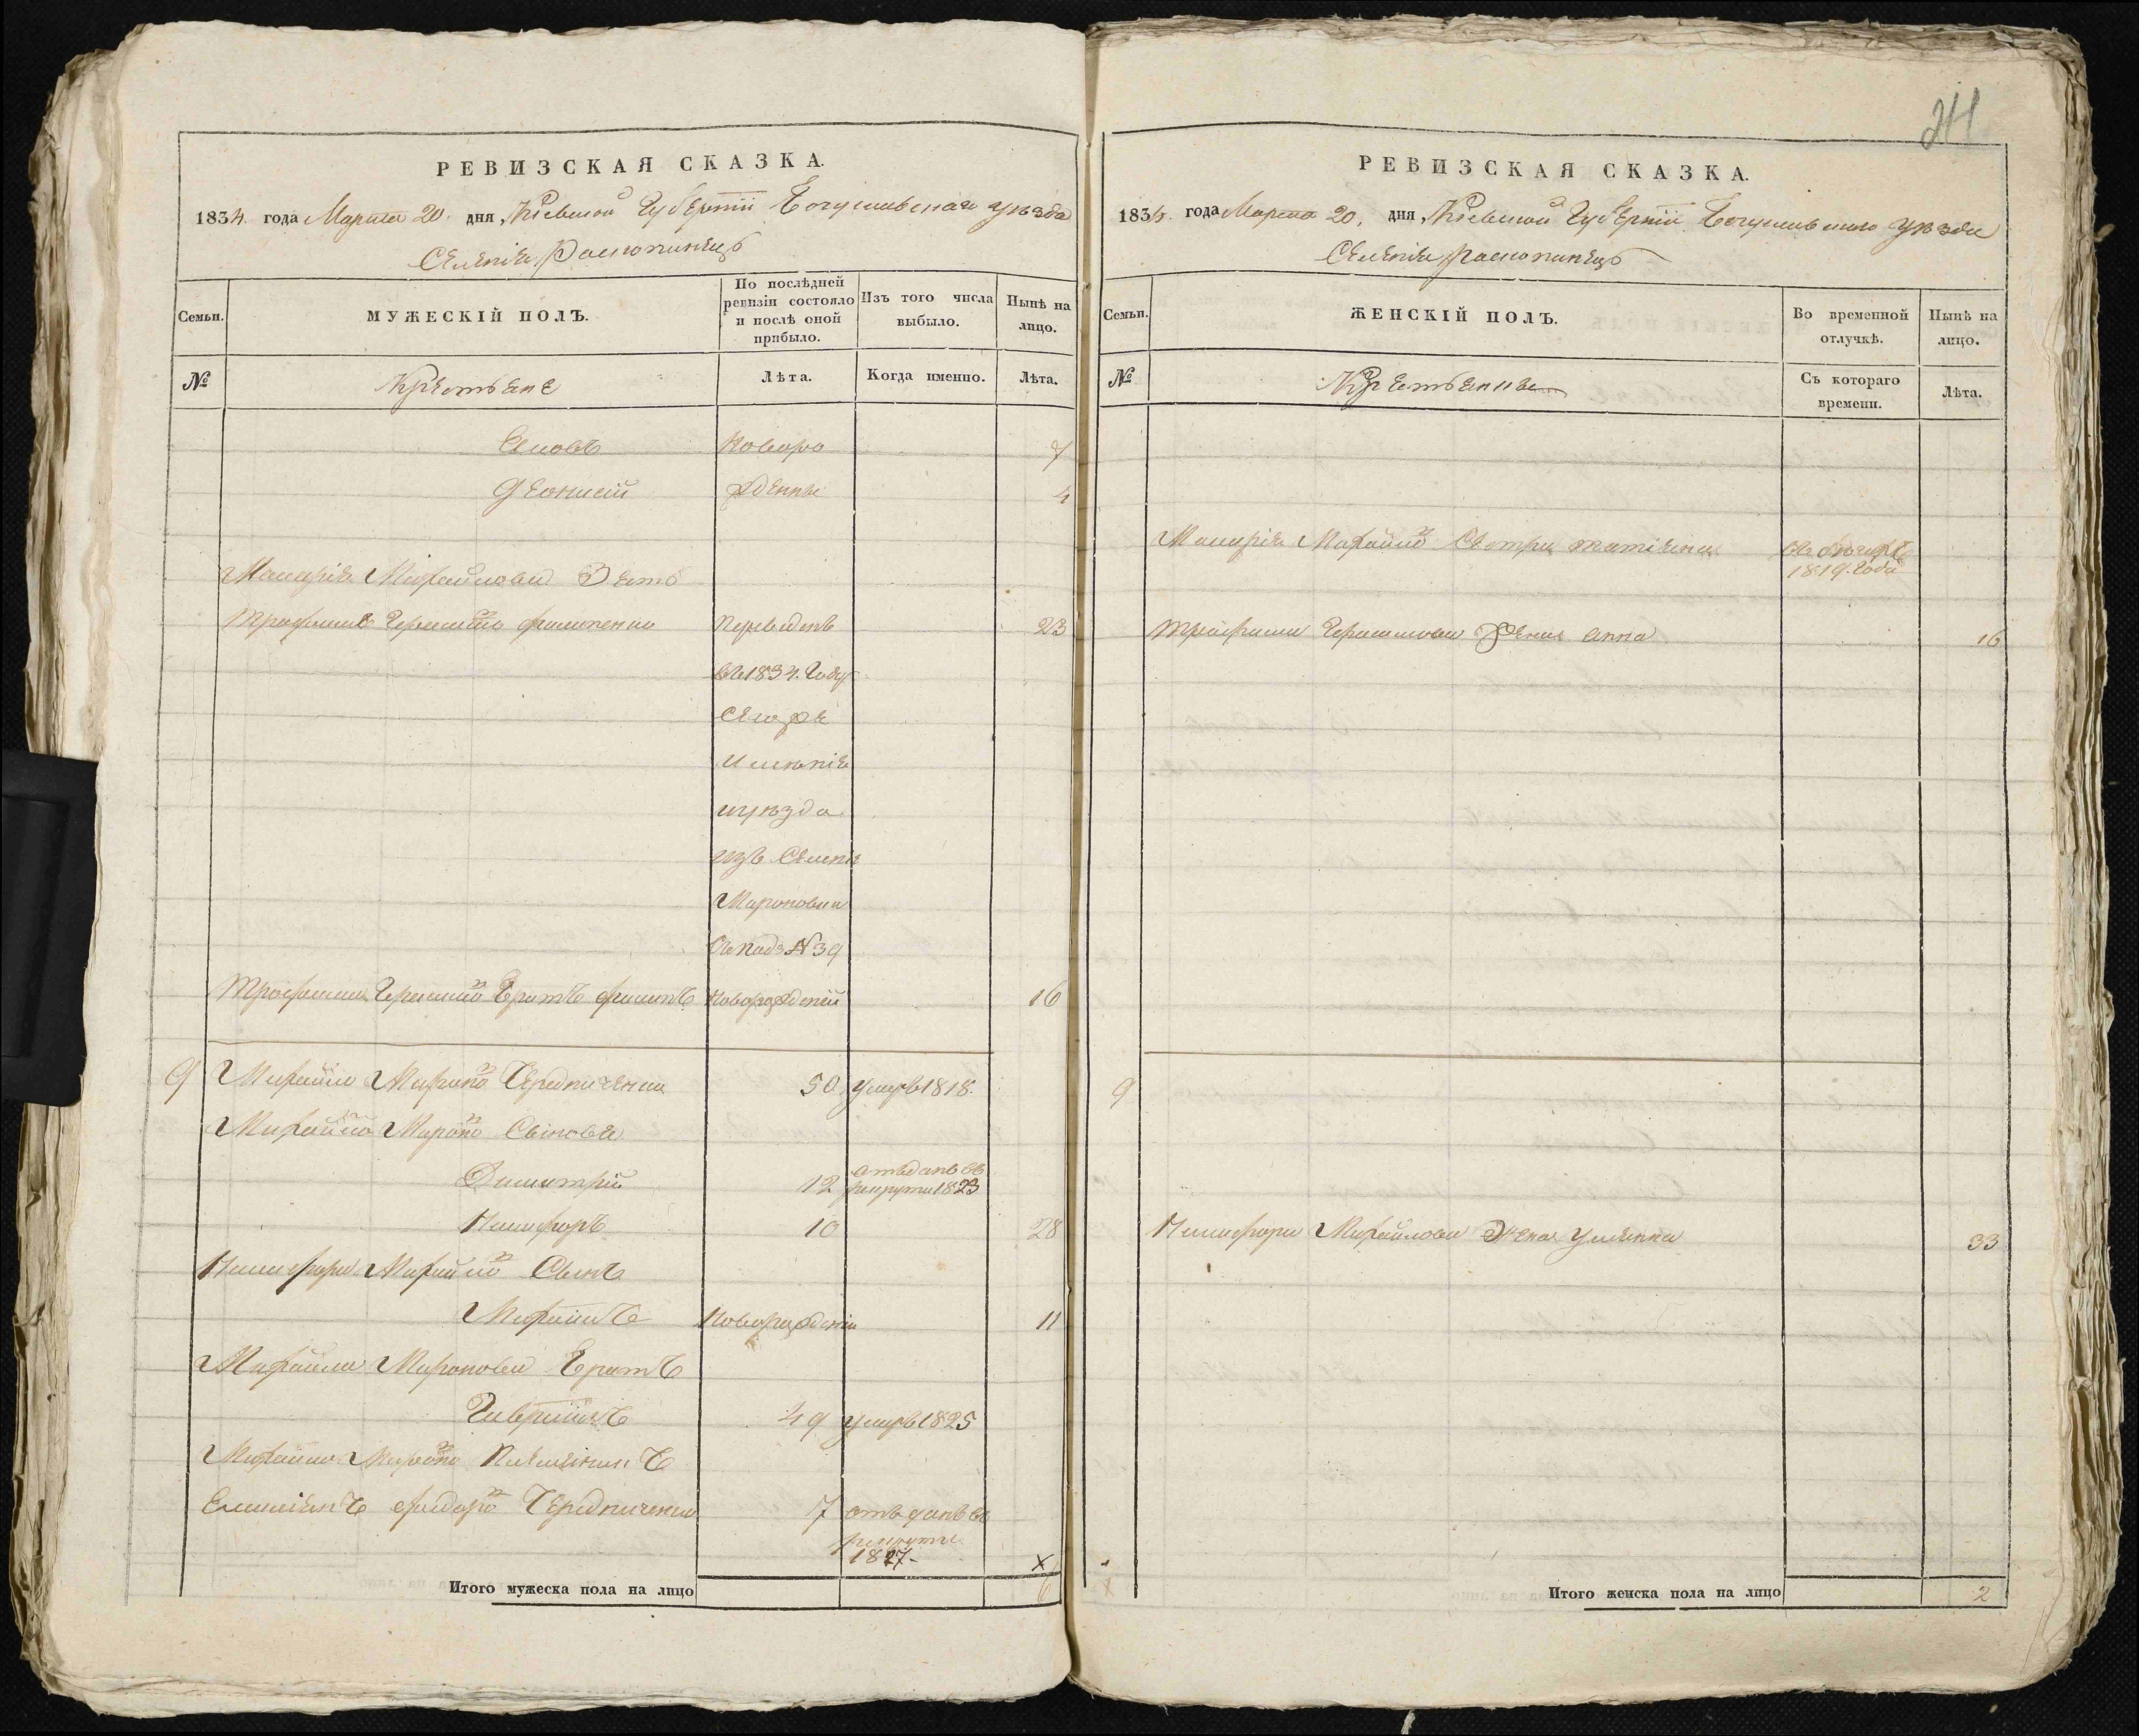 РЕВИЗСКАЯ СКАЗКА.
1834. года Марта 20. дня, Кіевской Губерніи Богуславскаго уѣзда
Селенія Расхопинецъ
Семьи.
МУЖЕСКІЙ ПОЛЪ.
По послѣдней ревизіи состояло и послѣ оной прибыло.
Изъ того числа выбыло.
Нынѣ на лицо.
№
Крестьяне
Лѣта.
Когда именно.
Лѣта.
Яковъ Новоро 7
Деонисій жденные 4
Макарія Михайлова Зять
Трофимъ Герасимо Переведенъ 23
въ 1834. Году
Сегоже
имѣнія
иуѣзда
изъ Селенія
Мироновки
Съ подъ № 39
Трофима Герасимо Братъ Филипъ Новорожденій 16
9 Михайло Миро Чередниченко 50 умеръ 1818.
Михайло Миро Сыновья
Димитрій 12 отъданъ въ
рекруты 1823
Никифоръ 10 28
Никифора Михайло Сынъ
Михаилъ Новорожденій 11
Михайла Миронова Братъ
Гавріилъ 49 умеръ 1825
Михайла Миро Племяникъ
Емилиянъ Федоро Чередниченко 7 отъданъ въ
рекруты
1827.
х
Итого мужеска пола на лицо 6
211
РЕВИЗСКАЯ СКАЗКА.
1834. года Марта 20. дня, Кіевской Губерніи Богуславскаго уѣзда
Селенія Расхопинецъ
Семьи.
ЖЕНСКІЙ ПОЛЪ.
Во временной отлучкѣ.
Нынѣ на лицо.
№
Крестьянки
Съ котораго времени.
Лѣта.
Макарія Михайло Сестра Татіяна въ
1819. Года
Трофима Герасимова Жена Анна 16
9
Никифора Михайлова Жена Улянна 33
х
Итого женска пола на лицо 2